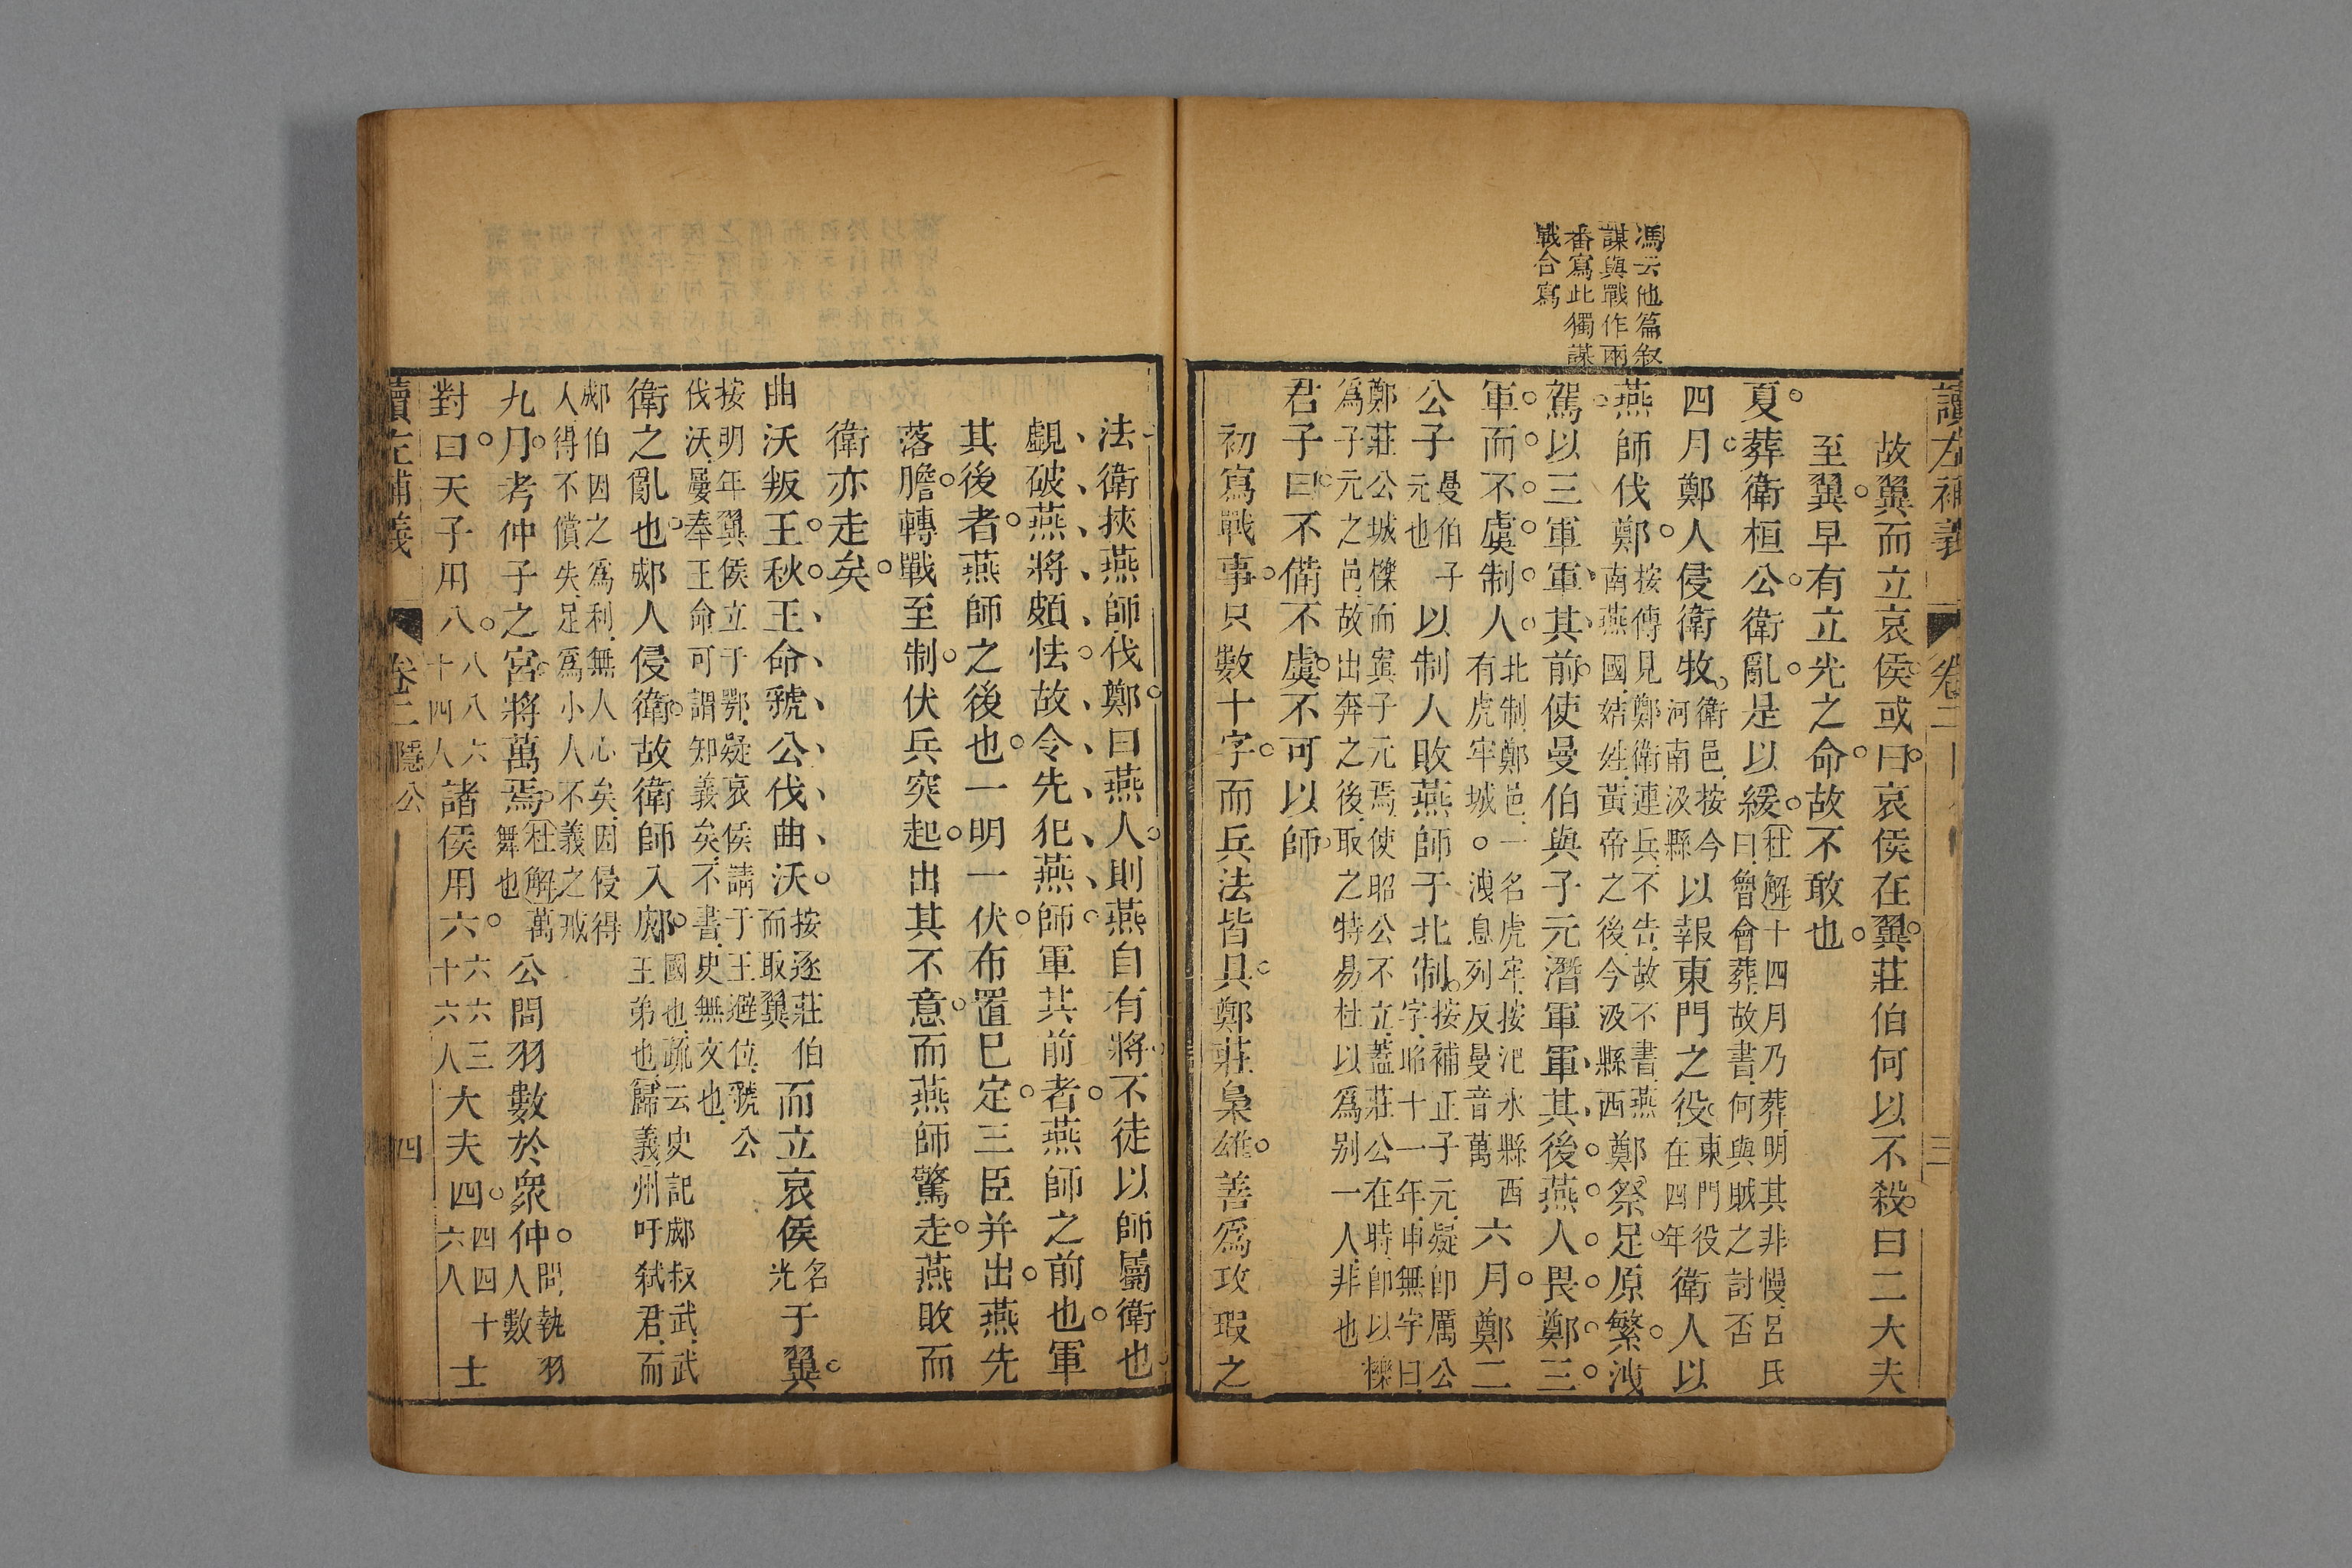 讀左補義
卷二
三
馮云他篇叙
謀與戰作兩
番寫此獨謀
戰合寫
故翼而立哀侯或曰哀侯在翼莊伯何以不殺曰二大夫
至翼早有立光之命故不敢也
夏葬衛桓公衛亂是以緩
杜解十四月乃葬明其非慢呂氏
曰魯會葬故書何與賊之討否
四月鄭人侵衛牧
衛邑按今
河南汲縣
以報東門之役
東門役
在四年
衛人以
燕師伐鄭
按傳見鄭衛連兵不告故不書燕
南燕國姞姓黃帝之後今汲縣西
鄭祭足原繁洩
駕以三軍軍其前使曼伯與子元潛軍軍其後燕人畏鄭三
軍而不虞制人
北制鄭邑一名虎牢按汜水縣西
有虎牢城○洩息列反曼音萬
六月鄭二
公子
曼伯子
元也
以制人敗燕師于北制
按補正子元疑即厲公
字昭十一年申無宇曰
鄭莊公城櫟而寘子元焉使昭公不立蓋莊公在時即以櫟
爲子元之邑故出奔之後取之特易杜以爲别一人非也
君子曰不備不虞不可以師
初寫戰事只數十字而兵法皆具鄭莊梟雄善爲攻瑕之
法衛挾燕師伐鄭曰燕人則燕自有將不徒以師屬衛也
覷破燕將頗怯故令先犯燕師軍其前者燕師之前也軍
其後者燕師之後也一明一伏布置已定三臣并出燕先
落膽轉戰至制伏兵突起出其不意而燕師驚走燕敗而
衛亦走矣
曲沃叛王秋王命虢公伐曲沃
按逐莊伯
而取翼
而立哀侯
名
光
于翼
按明年翼侯立于鄂疑哀侯請于王避位虢公
伐沃屢奉王命可謂知義矣不書史無文也
衛之亂也郕人侵衛故衛師入郕
國也疏云史記郕叔武武
王弟也歸義州吁弑君而
郕伯因之爲利無人心矣因侵得
人得不償失足爲小人不義之戒
九月考仲子之宮將萬焉
杜解萬
舞也
公問羽數於衆仲
問執羽
人數
對曰天子用八
八八六
十四人
諸侯用六
六六三
十六人
大夫四
四四十
六人
士
讀左補義
卷二隱公
四